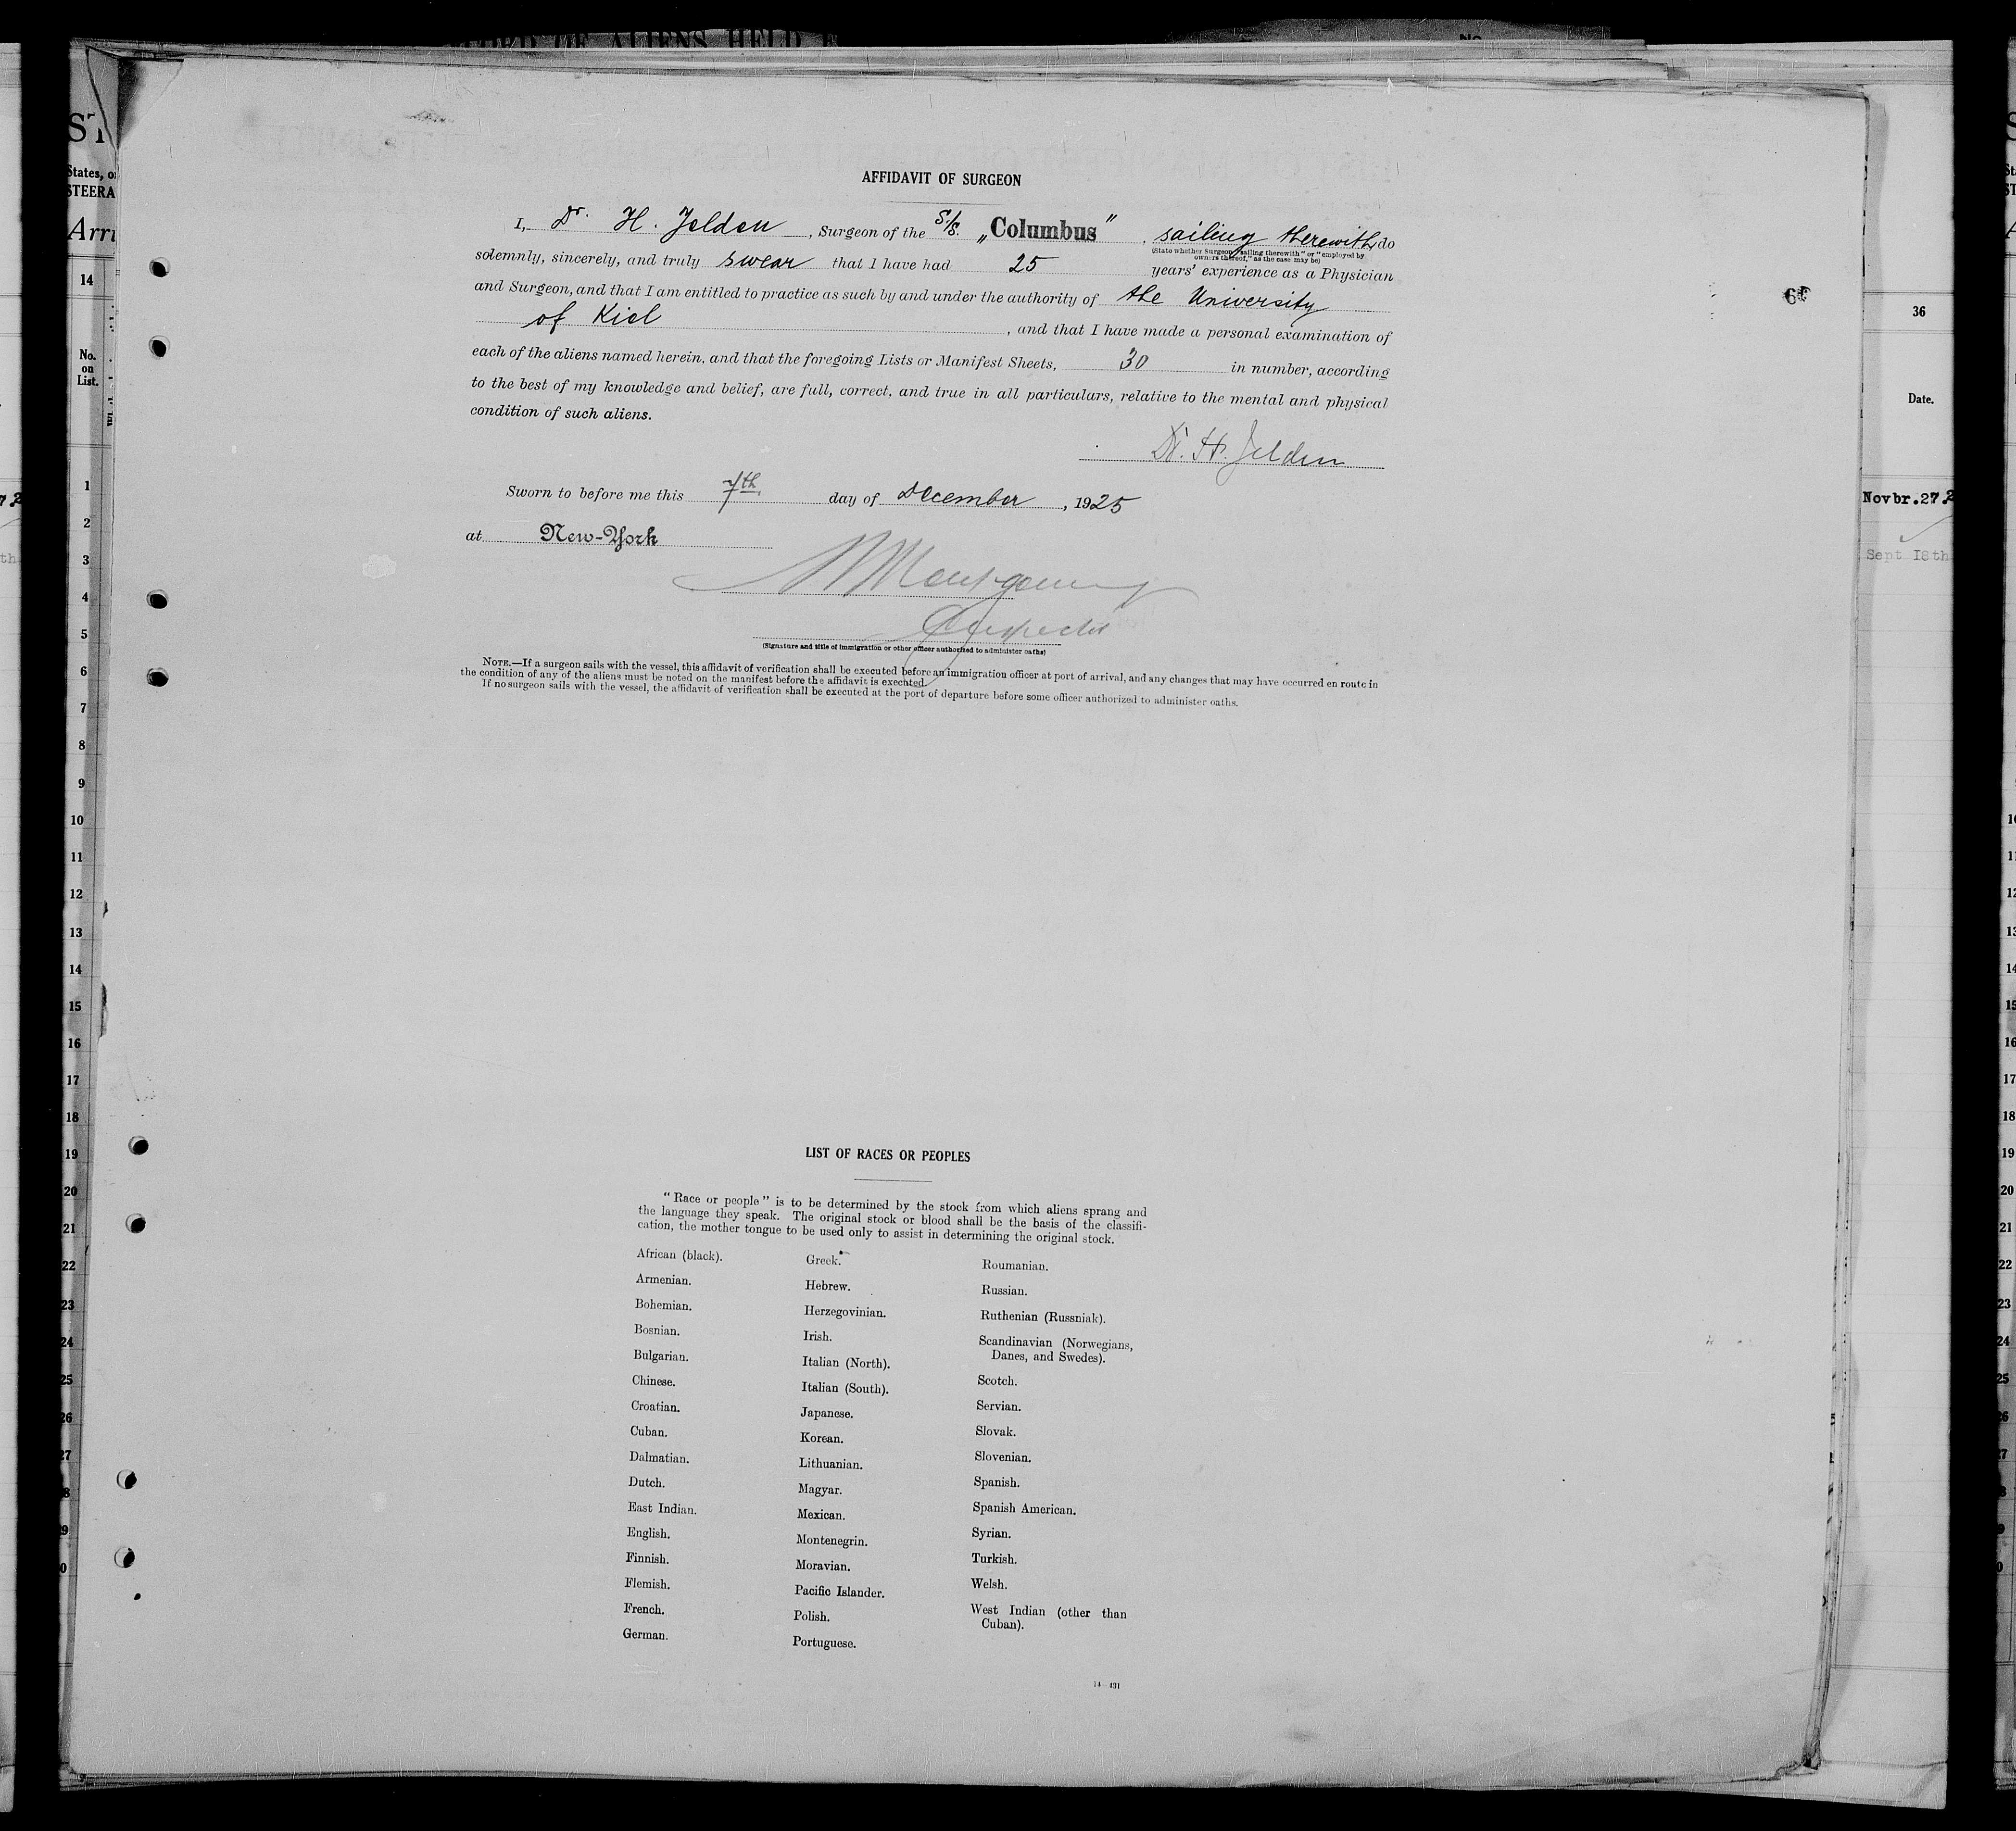 RECORD OF ALIENS HELD F
No
ST
States, or
STEERA
Arri
14
No.
on
List.
1
2
3
4
5
6
7
8
9
10
11
12
13
14
15
16
17
18
19
20
21
22
23
24
25
26
27
8
9
0
AFFIDAVIT OF SURGEON
I, Dr. H. Jelden, Surgeon of the S/S. „Columbus", sailing therewith, do
(State whether Surgeon "sailing therewith" or "employed by
owners thereof," as the case may be)
solemnly, sincerely, and truly swear that I have had 25 years' experience as a Physician
and Surgeon, and that I am entitled to practice as such by and under the authority of the University
of Kiel, and that I have made a personal examination of
each of the aliens named herein, and that the foregoing Lists or Manifest Sheets, 30 in number, according
to the best of my knowledge and belief, are full, correct, and true in all particulars, relative to the mental and physical
condition of such aliens.
Dr. H. Jelden
Sworn to before me this 7th day of December, 1925
at New-York
Montgomery
Inspector
(Signature and title of immigration or other officer authorized to administer oaths)
NOTE.—If a surgeon sails with the vessel, this affidavit of verification shall be executed before an immigration officer at port of arrival, and any changes that may have occurred en route in
the condition of any of the aliens must be noted on the manifest before the affidavit is executed.
If no surgeon sails with the vessel, the affidavit of verification shall be executed at the port of departure before some officer authorized to administer oaths.
LIST OF RACES OR PEOPLES
"Race or people" is to be determined by the stock from which aliens sprang and
the language they speak. The original stock or blood shall be the basis of the classifi-
cation, the mother tongue to be used only to assist in determining the original stock.
African (black).
Armenian.
Bohemian.
Bosnian.
Bulgarian.
Chinese.
Croatian.
Cuban.
Dalmatian.
Dutch.
East Indian.
English.
Finnish.
Flemish.
French.
German.
Greek.
Hebrew.
Herzegovinian.
Irish.
Italian (North).
Italian (South).
Japanese.
Korean.
Lithuanian.
Magyar.
Mexican.
Montenegrin.
Moravian.
Pacific Islander.
Polish.
Portuguese.
Roumanian.
Russian.
Ruthenian (Russniak).
Scandinavian (Norwegians,
Danes, and Swedes).
Scotch.
Servian.
Slovak.
Slovenian.
Spanish.
Spanish American.
Syrian.
Turkish.
Welsh.
West Indian (other than
Cuban).
14—431
36
Date.
Novbr.27
Sept 18th